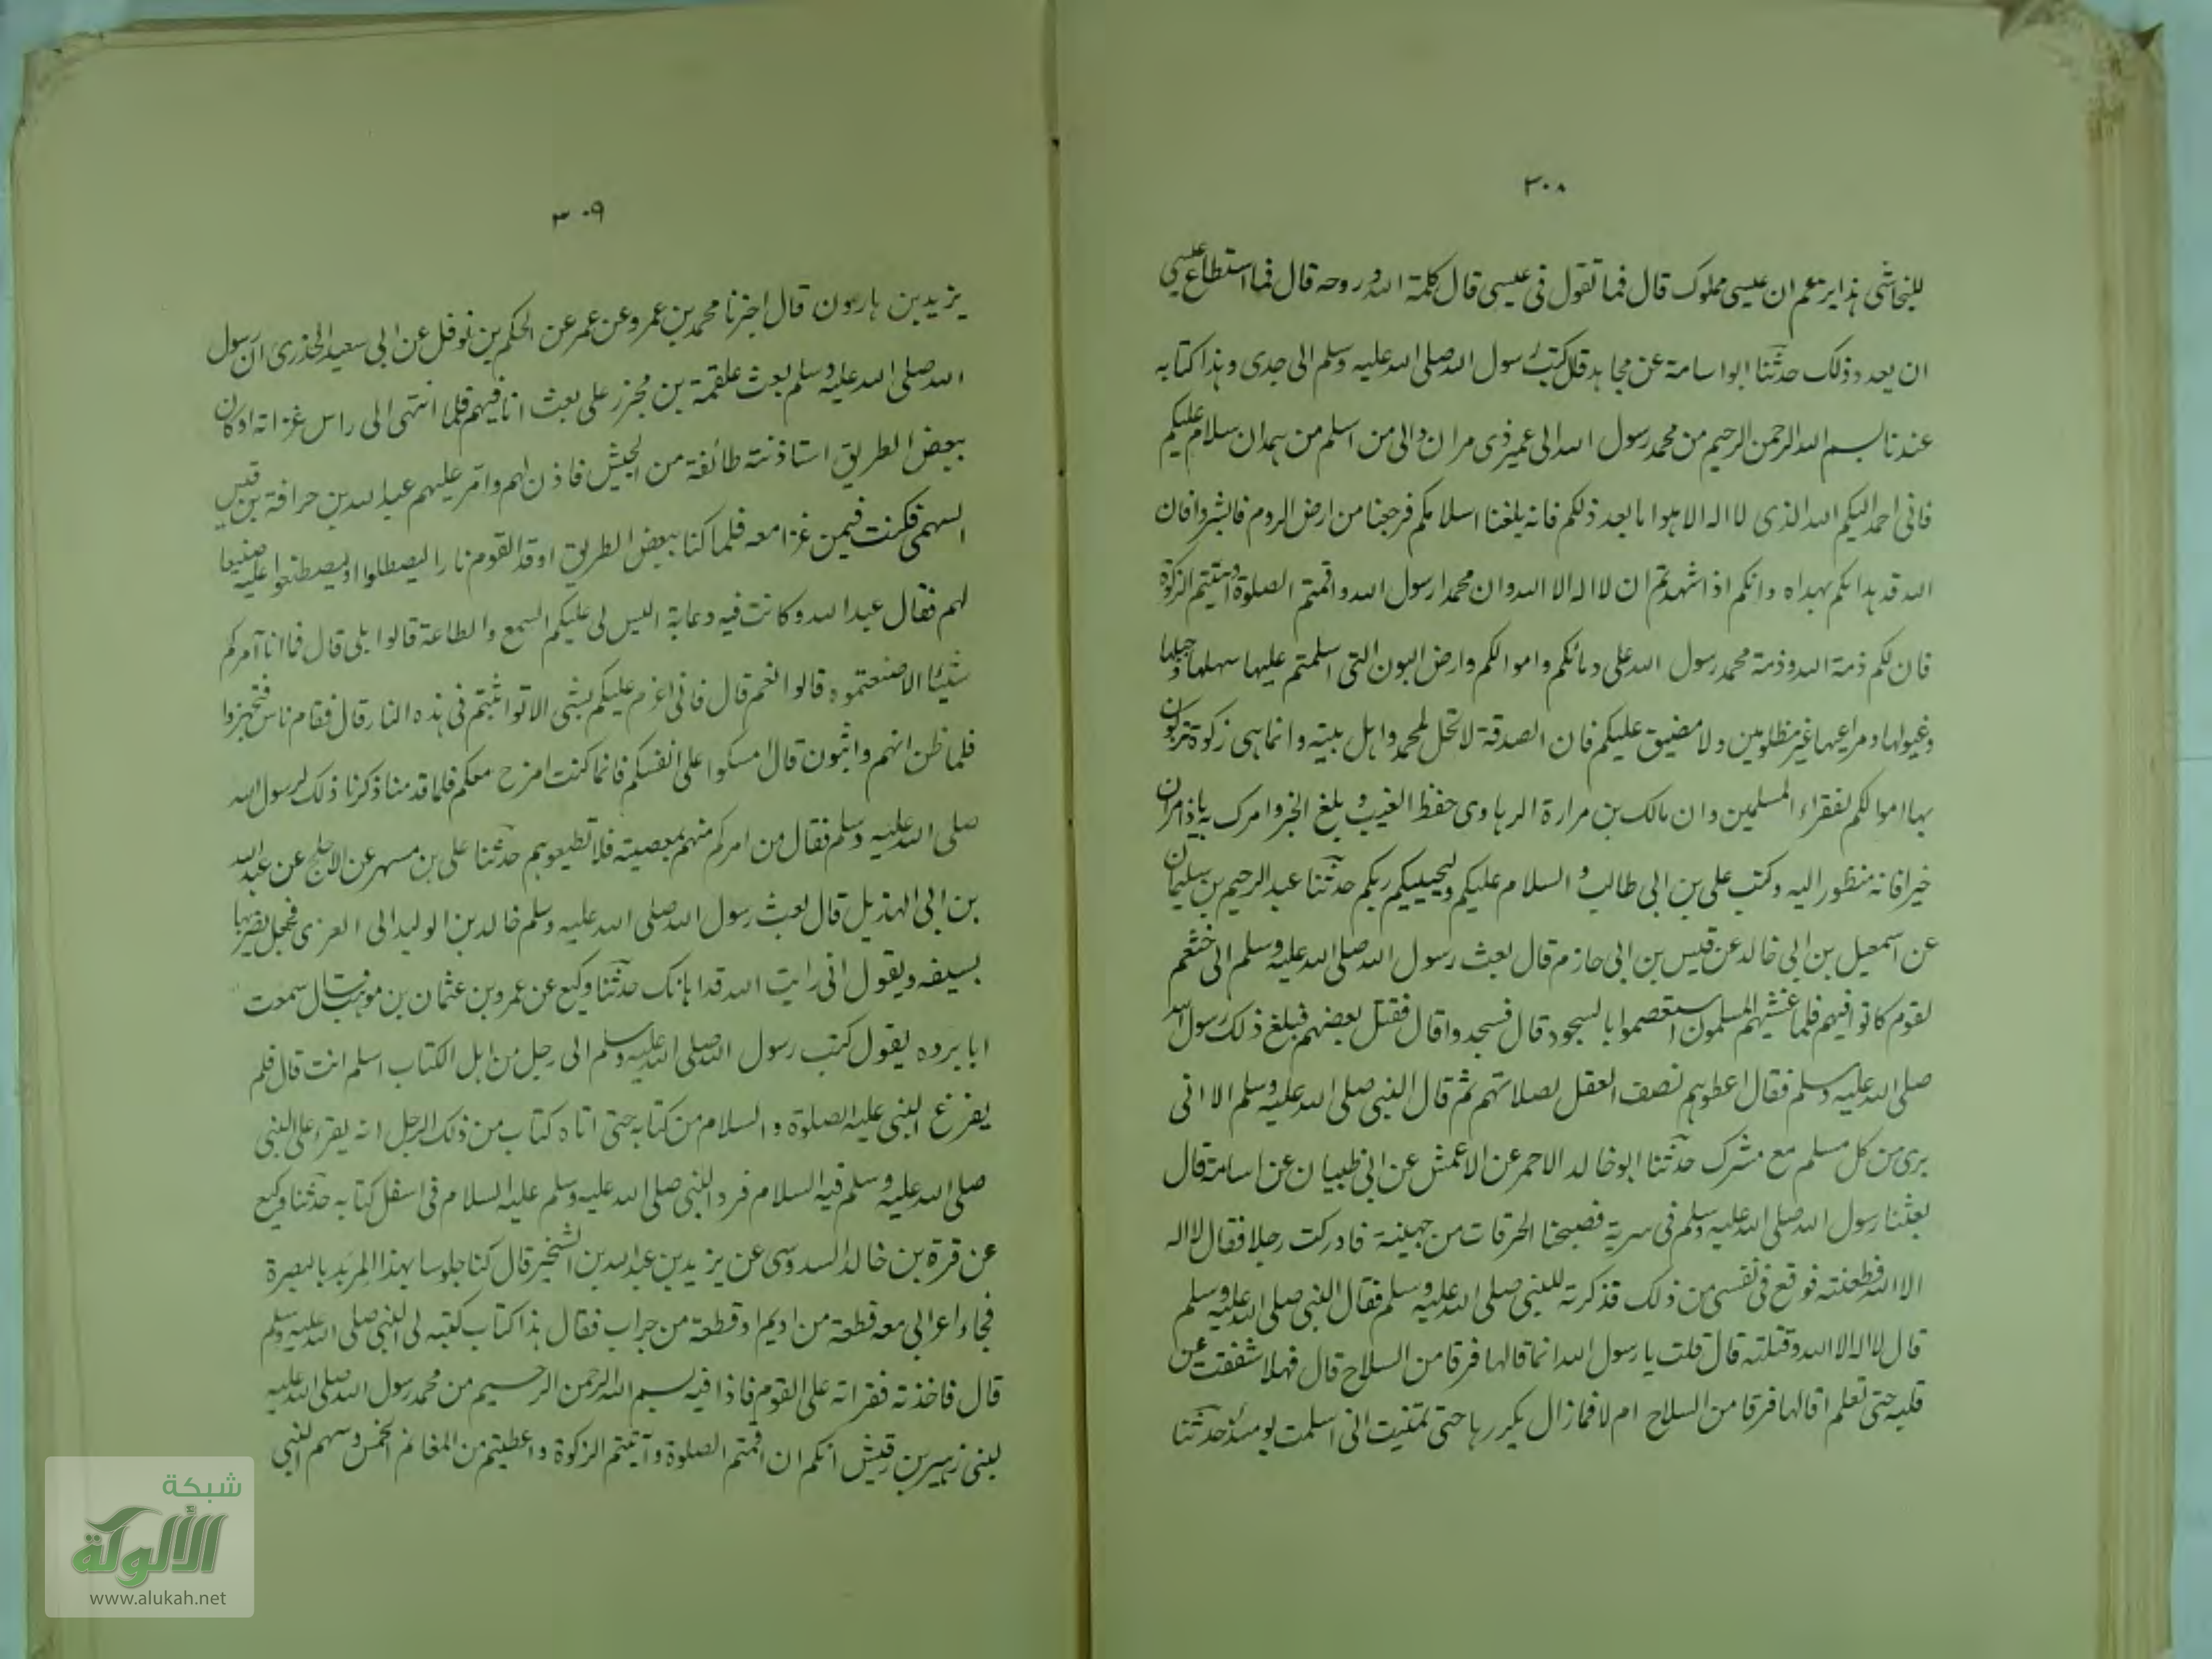 ٣٠٨
للنجاشى هذا يزعم ان عيسى مملوك قال فما تقول فى عيسى قال كلمة الله وروحه قال فما استطاع عيسى
ان يعدو ذلك حدثنا ابو اسامة عن مجاهد قال كتب رسول الله صلى الله عليه وسلم الى جدى وهذا كتابه
عندنا بسم الله الرحمن الرحيم من محمد رسول الله الى عمير ذى مران والى من اسلم من همدان سلام عليكم
فانى احمد اليكم الله الذى لا اله الا هو اما بعد ذلكم فانه بلغنا اسلامكم فرجعنا من ارض الروم فابشروا فان
الله قد هداكم بهداه وانكم اذا شهدتم ان لا اله الا الله وان محمدا رسول الله واقمتم الصلوة وآتيتم الزكوة
فان لكم ذمة الله وذمة محمد رسول الله على دمائكم واموالكم وارض البون التى اسلمتم عليها سهلها وجبلها
وغيولها ومراعيها غير مظلومين ولا مضيق عليكم فان الصدقة لا تحل لمحمد واهل بيته وانما هى زكوة تزكون
بها اموالكم لفقراء المسلمين وان مالك بن مرارة الرهاوى حفظ الغيب وبلغ الخبر وامرك به ياذا مران
خيرا فانه منظور اليه وكتب على بن ابى طالب والسلام عليكم وليحييكم ربكم حدثنا عبد الرحيم بن سليمان
عن اسمعيل بن ابى خالد عن قيس بن ابى حازم قال بعث رسول الله صلى الله عليه وسلم الى خثعم
لقوم كانوا فيهم فلما غشيهم المسلمون استعصموا بالسجود قال فسجدوا قال فقتل بعضهم فبلغ ذلك رسول الله
صلى الله عليه وسلم فقال اعطوهم نصف العقل لصلاتهم ثم قال النبى صلى الله عليه وسلم الا انى
برى من كل مسلم مع مشرك حدثنا ابو خالد الاحمر عن الاعمش عن ابى ظبيان عن اسامة قال
بعثنا رسول الله صلى الله عليه وسلم فى سرية فصبحنا الحرقات من جهينة فادركت رجلا فقال لا اله
الا الله فطعنته فوقع فى نفسى من ذلك فذكرته للنبى صلى الله عليه وسلم فقال النبى صلى الله عليه وسلم
قال لا اله الا الله وقتلته قال قلت يا رسول الله انما قالها فرقا من السلاح قال فهلا شققت عن
قلبه حتى تعلم اقالها فرقا من السلاح ام لا فما زال يكررها حتى تمنيت انى اسلمت يومئذ حدثنا
٣٠٩
يزيد بن هارون قال اخبرنا محمد بن عمرو عن عمر عن الحكم بن نوفل عن ابى سعيد الخدرى ان رسول
الله صلى الله عليه وسلم بعث علقمة بن مجزر على بعث انا فيهم فلما انتهى الى راس غزاته او كان
ببعض الطريق استاذنته طائفة من الجيش فاذن لهم وامر عليهم عبد الله بن حرافة بن قيس
السهمى فكنت فيمن غزا معه فلما كنا ببعض الطريق اوقد القوم نارا ليصطلوا او ليصطنعوا عليه صنيعا
لهم فقال عبد الله وكانت فيه دعابة اليس لى عليكم السمع والطاعة قالوا بلى قال فما انا آمركم
شيئا الا صنعتموه قالوا نعم قال فانى اعزم عليكم بشى الا تواثبتم فى هذه النار قال فقام ناس فتجهزوا
فلما ظن انهم واثبون قال امسكوا على انفسكم فانما كنت امزح معكم فلما قدمنا ذكرنا ذلك لرسول الله
صلى الله عليه وسلم فقال من امركم منهم بمعصيته فلا تطيعوهم حدثنا على بن مسهر عن الاجلح عن عبد الله
بن ابى الهذيل قال بعث رسول الله صلى الله عليه وسلم خالد بن الوليد الى العزى فجعل يضربها
بسيفه ويقول انى رايت الله قد اهانك حدثنا وكيع عن عمرو بن عثمان بن موهب قال سمعت
ابا برده يقول كتب رسول الله صلى الله عليه وسلم الى رجل من اهل الكتاب اسلم انت قال فلم
يفرغ النبى عليه الصلوة والسلام من كتابه حتى اتاه كتاب من ذلك الرجل انه يقرء على النبى
صلى الله عليه وسلم فيه السلام فرد النبى صلى الله عليه وسلم عليه السلام فى اسفل كتابه حدثنا وكيع
عن قرة بن خالد السدوسى عن يزيد بن عبد الله بن الشخير قال كنا جلوسا بهذا المربد بالبصرة
فجاء اعرابى معه قطعة من اديم او قطعة من جراب فقال هذا كتاب كتبه لى النبى صلى الله عليه وسلم
قال فاخذته فقراته على القوم فاذا فيه بسم الله الرحمن الرحيم من محمد رسول الله صلى الله عليه
لبنى زهير بن اقيش انكم ان اقمتم الصلوة وآتيتم الزكوة واعطيتم من المغانم الخمس وسهم النبى
شبكة
الألوكة
www.alukah.net